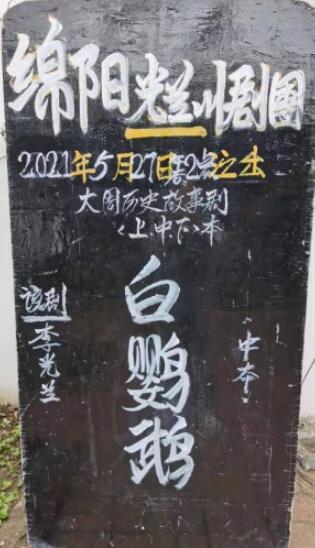 绵阳光兰川剧團
2021年5月27日2点之出
大周历史故事剧
《上.中.下》本
该剧
李光兰
白鹦鹉
《中本》